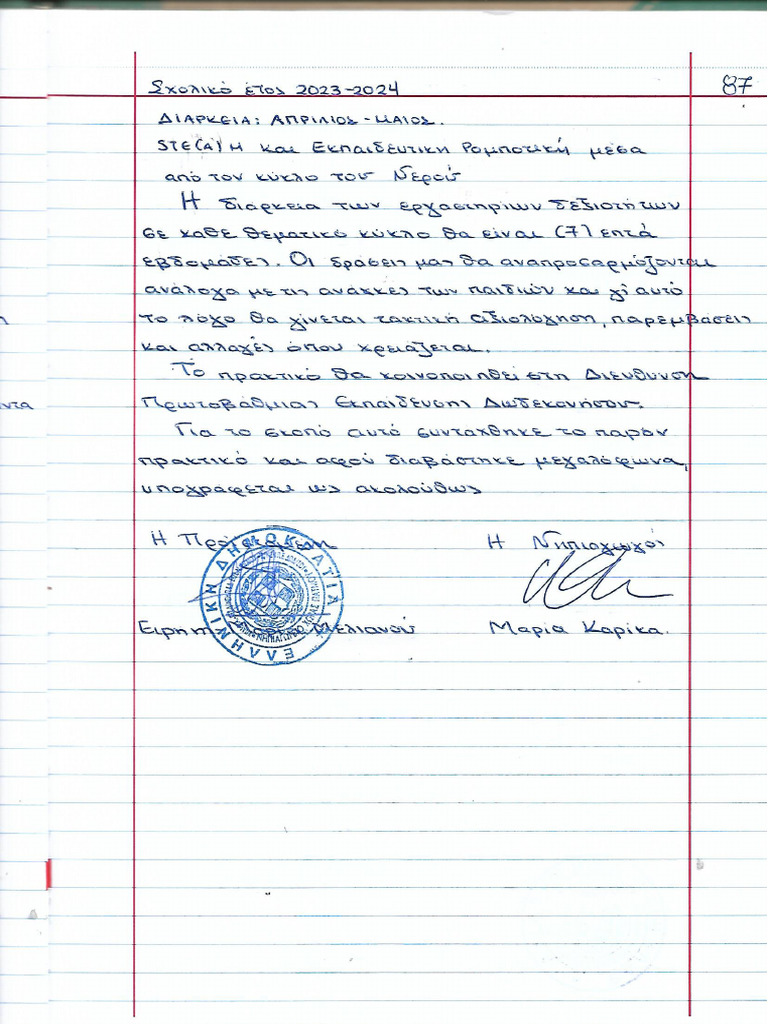 Σχολικό έτος 2023-2024
87
ΔΙΑΡΚΕΙΑ: ΑΠΡΙΛΙΟΣ-ΜΑΙΟΣ.
STE(A)M και Εκπαιδευτική Ρομποτική μέσα
από τον κύκλο του Νερού
Η διάρκεια των εργαστηρίων δεξιοτήτων
σε κάθε θεματικό κύκλο θα είναι (7) επτά
εβδομάδες. Οι δράσεις μας θα αναπροσαρμόζονται
ανάλογα με τις ανάγκες των παιδιών και γι αυτό
το λόγο θα γίνεται τακτική αξιολόγηση, παρεμβάσεις
και αλλαγές όπου χρειάζεται.
Το πρακτικό θα κοινοποιηθεί στη Διεύθυνση
Πρωτοβάθμιας Εκπαίδευσης Δωδεκανήσου.
Για το σκοπό αυτό συντάχθηκε το παρόν
πρακτικό και αφού διαβάστηκε μεγαλόφωνα,
υπογράφεται ως ακολούθως
Η Προϊσταμένη Η Νηπιαγωγός
ΕΛΛΗΝΙΚΗ ΔΗΜΟΚΡΑΤΙΑ
Ειρήνη Μελιανού Μαρία Καρίκα.
ντα